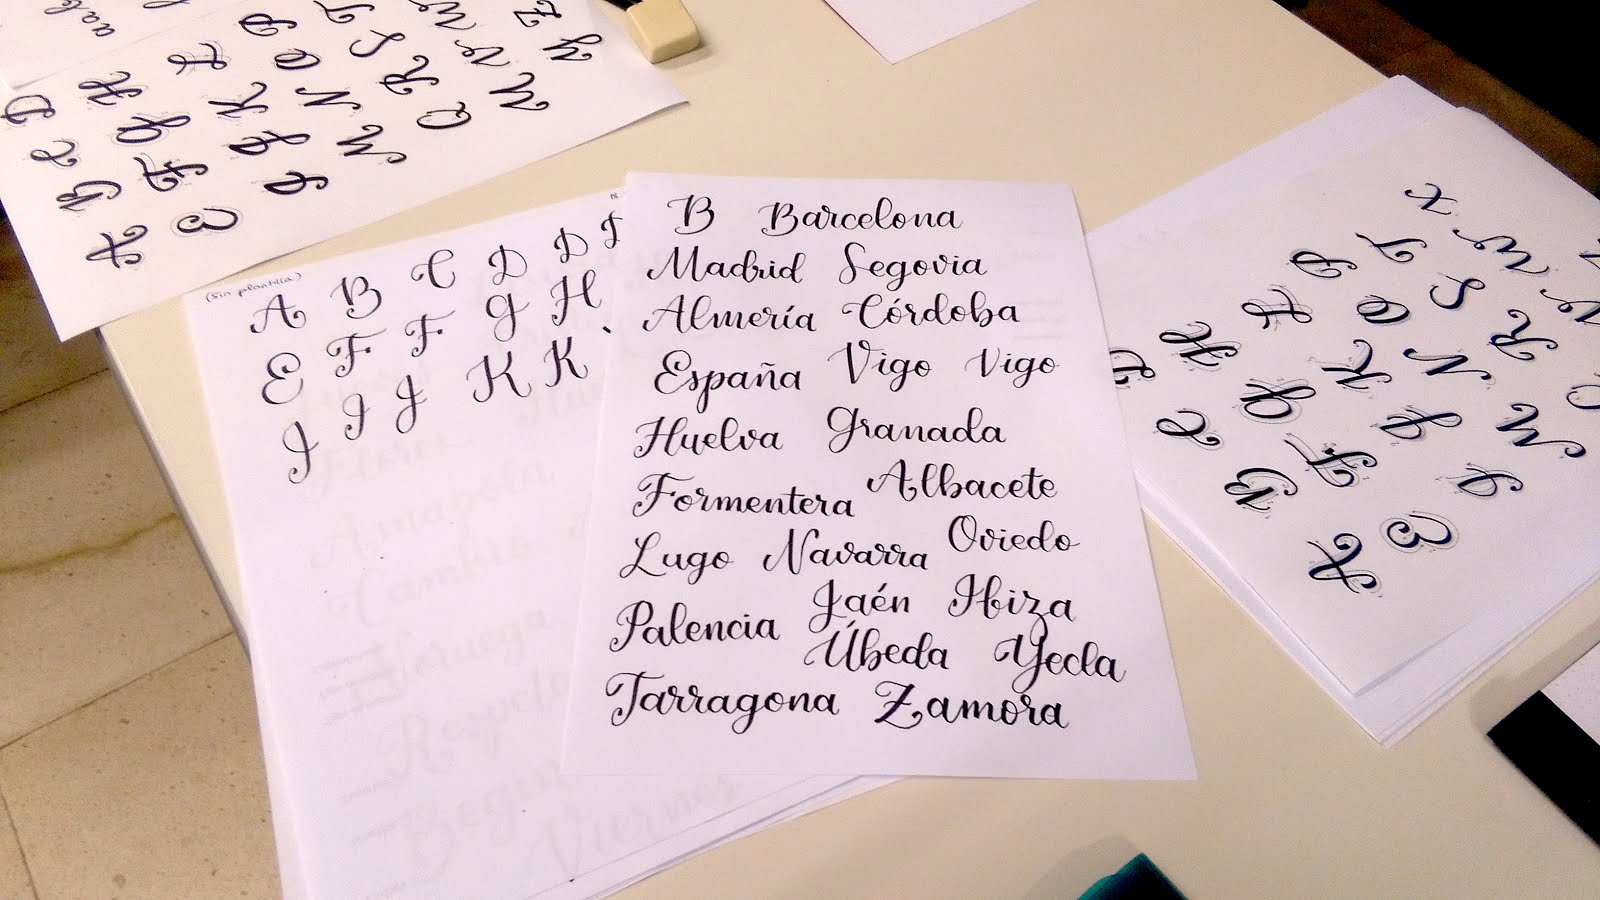 B Barcelona
Madrid Segovia
Almería Córdoba
España Vigo Vigo
Huelva Granada
Formentera Albacete
Lugo Navarra Oviedo
Palencia Jaén Ibiza
Úbeda Yecla
Tarragona Zamora
(sin plantilla)
A B C D D
E F F G H
I I J K K
Amapola
Noruega
Begin
Viernes
A B C D
E F G H
I J K L
M N O P
Q R S T
U V W
Y Z
A B C D
E F G H
I J K L
M N O P
R S T
V W X